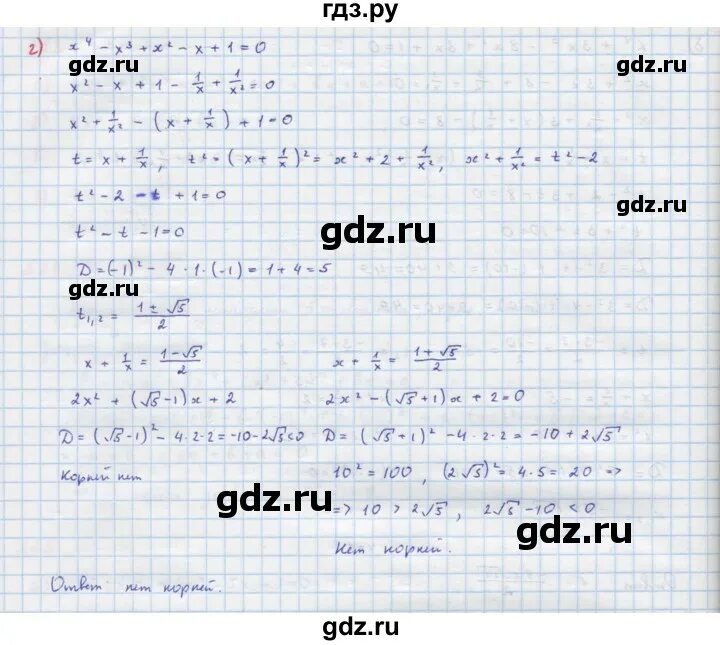 гдз.ру
г) x⁴ - x³ + x² - x + 1 = 0
gdz.ru gdz.ru
x² - x + 1 - 1/x + 1/x² = 0
x² + 1/x² - (x + 1/x) + 1 = 0
t = x + 1/x, t² = (x + 1/x)² = x² + 2 + 1/x², x² + 1/x² = t² - 2
t² - 2 - t + 1 = 0
gdz.ru
gdz.ru
t² - t - 1 = 0
D = (-1)² - 4 · 1 · (-1) = 1 + 4 = 5
gdz.ru
t₁,₂ = (1 ± √5)/2
x + 1/x = (1 - √5)/2 x + 1/x = (1 + √5)/2
gdz.ru
2x² + (√5 - 1)x + 2 2x² - (√5 + 1)x + 2 = 0
D = (√5 - 1)² - 4 · 2 · 2 = -10 - 2√5 < 0 D = (√5 + 1)² - 4 · 2 · 2 = -10 + 2√5
Корней нет 10² = 100, (2√5)² = 4 · 5 = 20 =>
gdz.ru
=> 10 > 2√5, 2√5 - 10 < 0
gdz.ru
Нет корней.
Ответ: нет корней.
gdz.ru